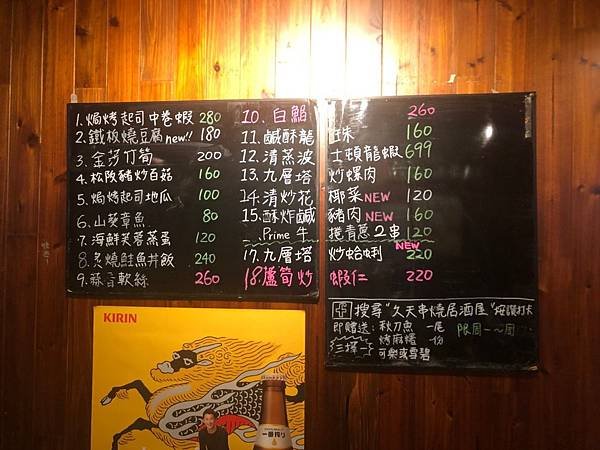 1. 焗烤起司中卷蝦 280
2. 鐵板燒豆腐 new!! 180
3. 金莎竹筍 200
4. 松阪豬炒百菇 160
5. 焗烤起司地瓜 100
6. 山葵章魚 80
7. 海鮮芙蓉蒸蛋 120
8. 炙燒鮭魚丼飯 240
9. 蒜香軟絲 260
10. 白鯧 260
11. 鹹酥龍珠 160
12. 清蒸波士頓龍蝦 699
13. 九層塔炒螺肉 160
14. 清炒花椰菜 NEW 120
15. 酥炸鹹豬肉 NEW 160
Prime 牛捲青蔥 2串 120
17. 九層塔炒蛤蜊 NEW 220
18. 蘆筍炒蝦仁 220
搜尋"久天串燒居酒屋"按讚打卡
即贈送: 秋刀魚 一尾 限周一~周
三擇一 烤麻糬 一份
可樂或雪碧
KIRIN
一番搾り